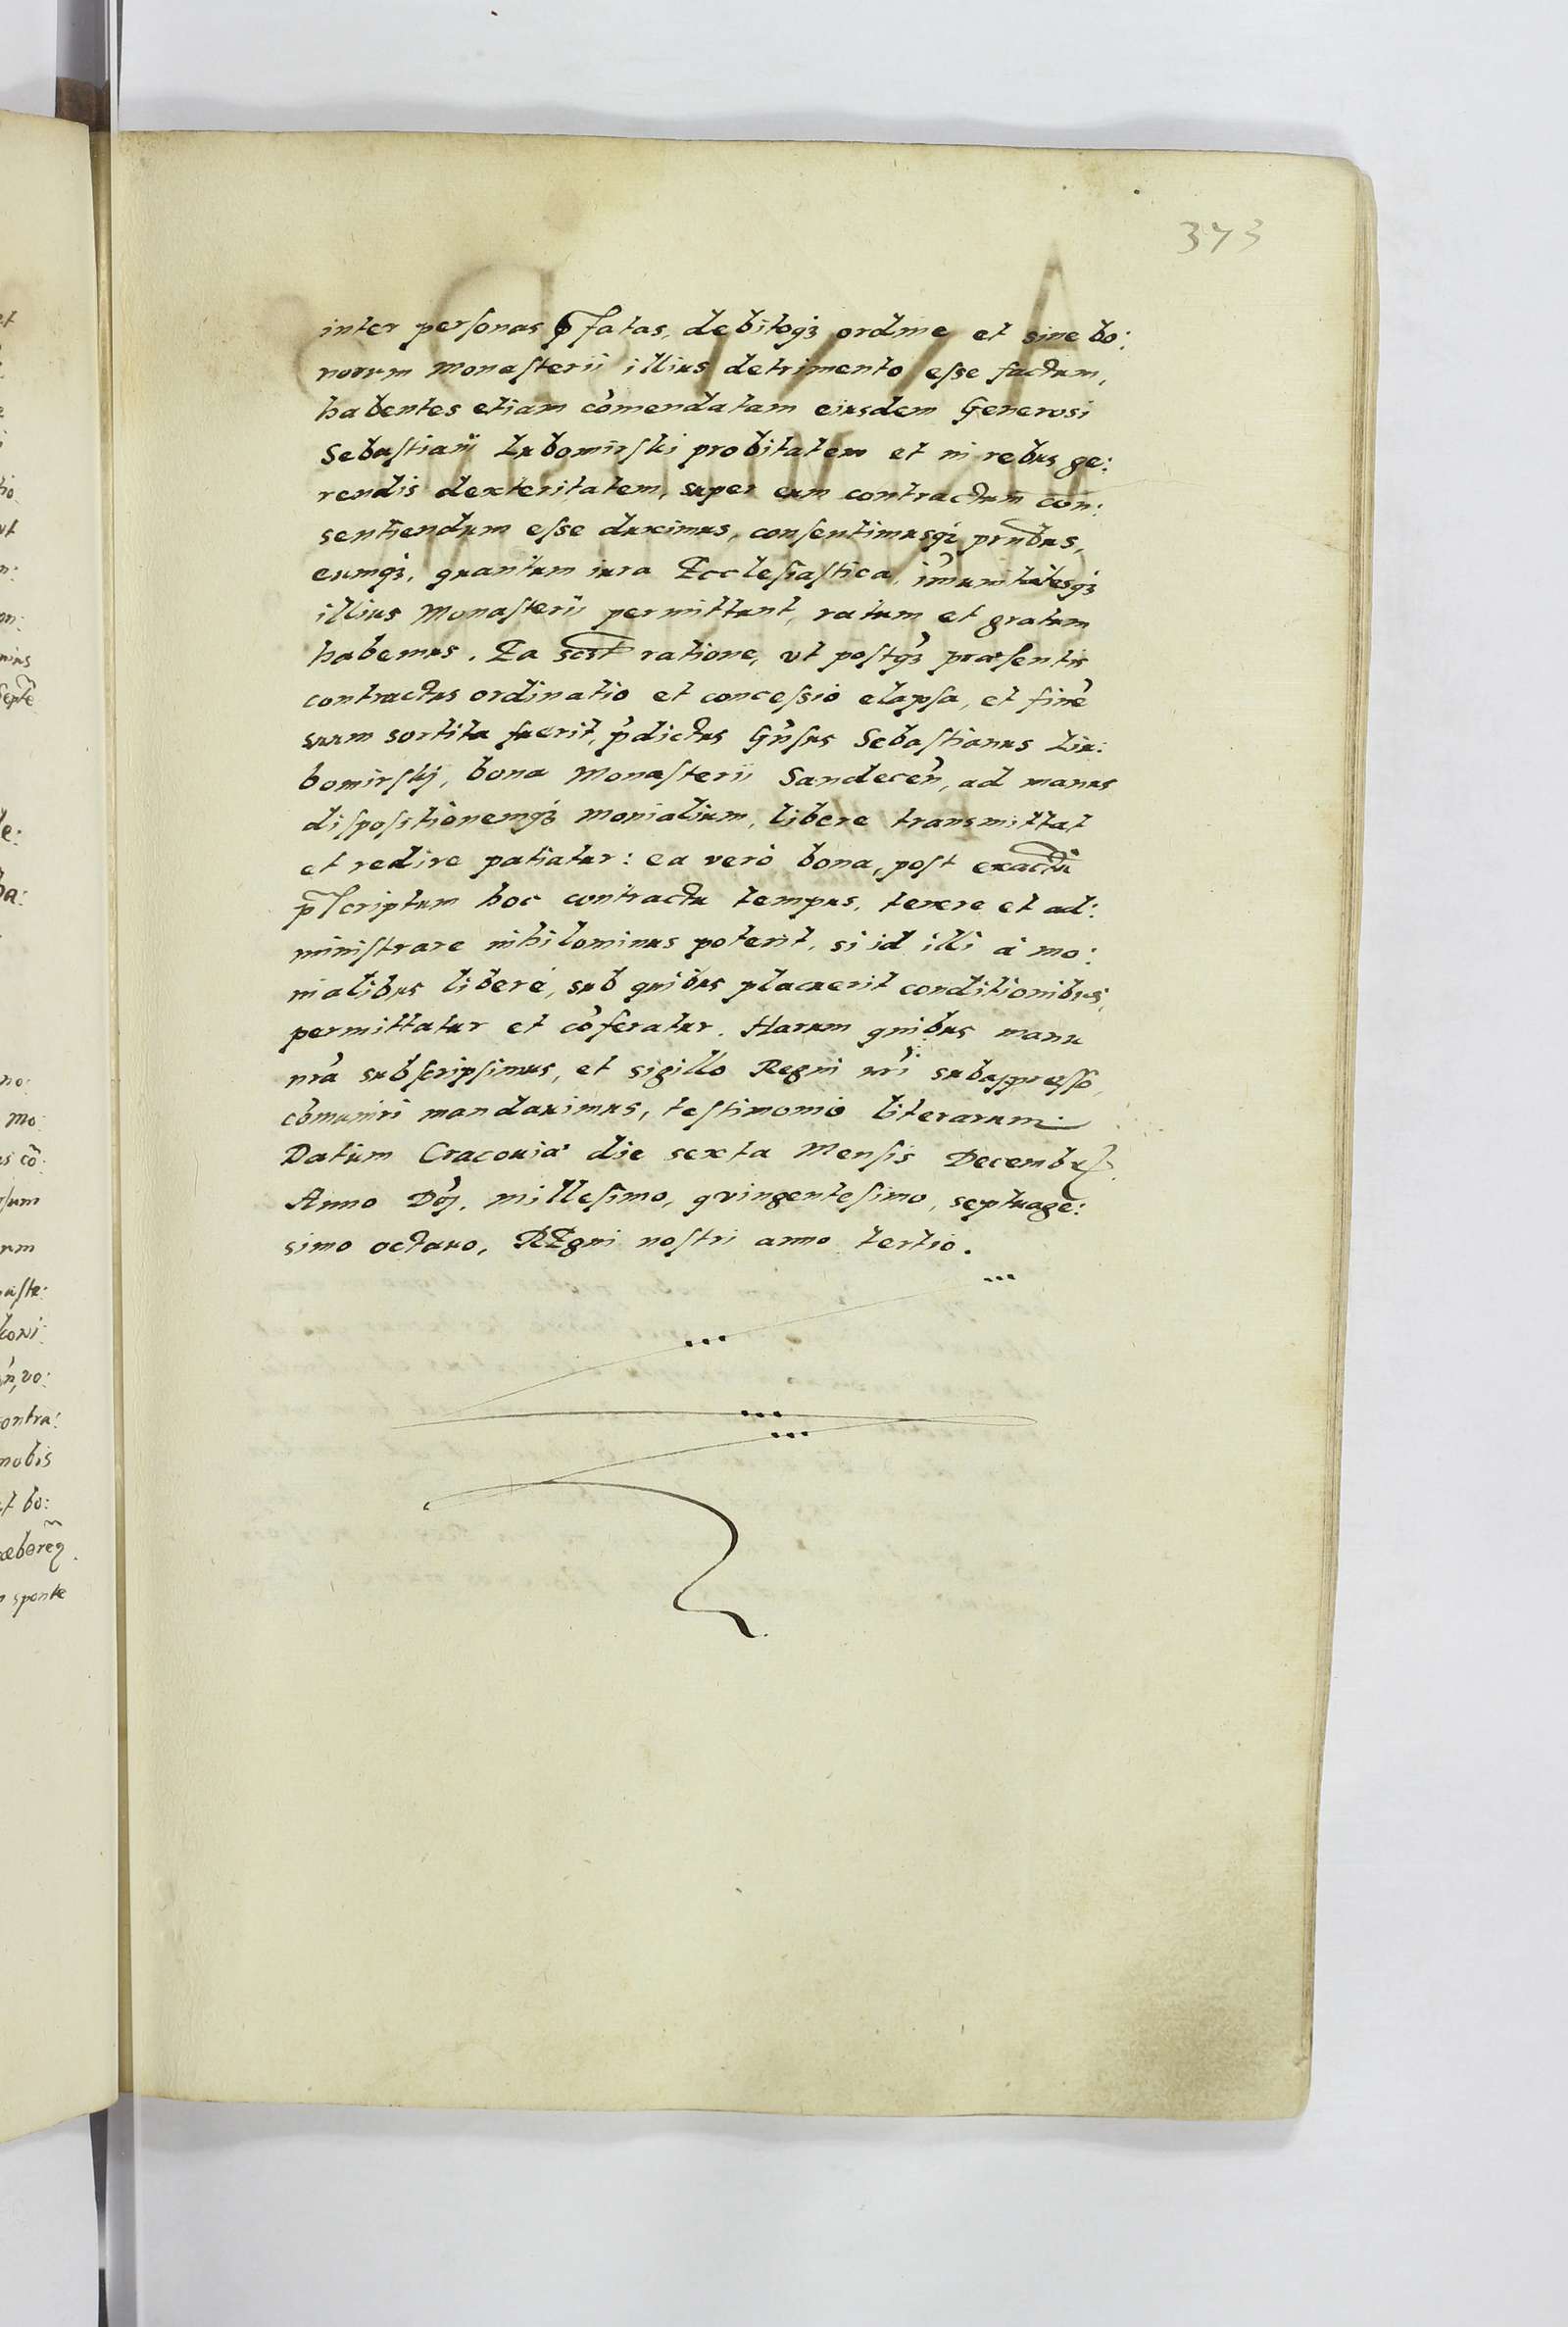 373
inter personas p̃fatas, debitoq₃ ordine et sine bo:
norum Monasterii illius detrimento esse factum,
habentes etiam cõmendatam eiusdem Generosi
Sebastiani Lubomirski probitatem et in rebus ge:
rendis dexteritatem, super eum contractum con:
sentiendum esse duximus, consentimusq₃ pr̃ntibus,
eumq₃, quantum iura Ecclesiastica, im̃unitatesq₃
illius Monasterii permittunt, ratum et gratum
habemus. Ea ratione, vt postq₃ præsentis
contractus ordinatio et concessio elapsa, et finẽ
suum sortita fuerit, p̃dictus Gñsus Sebastianus Lu:
bomirskj, bona Monasterii Sandeceñ, ad manus
dispositionemq₃ monialium, libere transmittat
et redire patiatur: ea verò bona, post exactũ
p̃scriptum hoc contractu tempus, tenere et ad:
ministrare nihilominus poterit, si id illi à mo:
nialibus liberè, sub quibus placuerit conditionibus,
permittatur et cõferatur. Harum quibus manu
nr̃a subscripsimus, et sigillo Regni nr̃i subappresso,
cõmuniri mandauimus, testimonio literarum.
Datum Cracouiæ die sexta Mensis Decembris.
Anno Dñj. millesimo, qvingentesimo, septuage:
simo octauo, REgni nostri anno tertio.
le:
no:
mo:
aste:
ontra:
nobis
et bo:
sponte